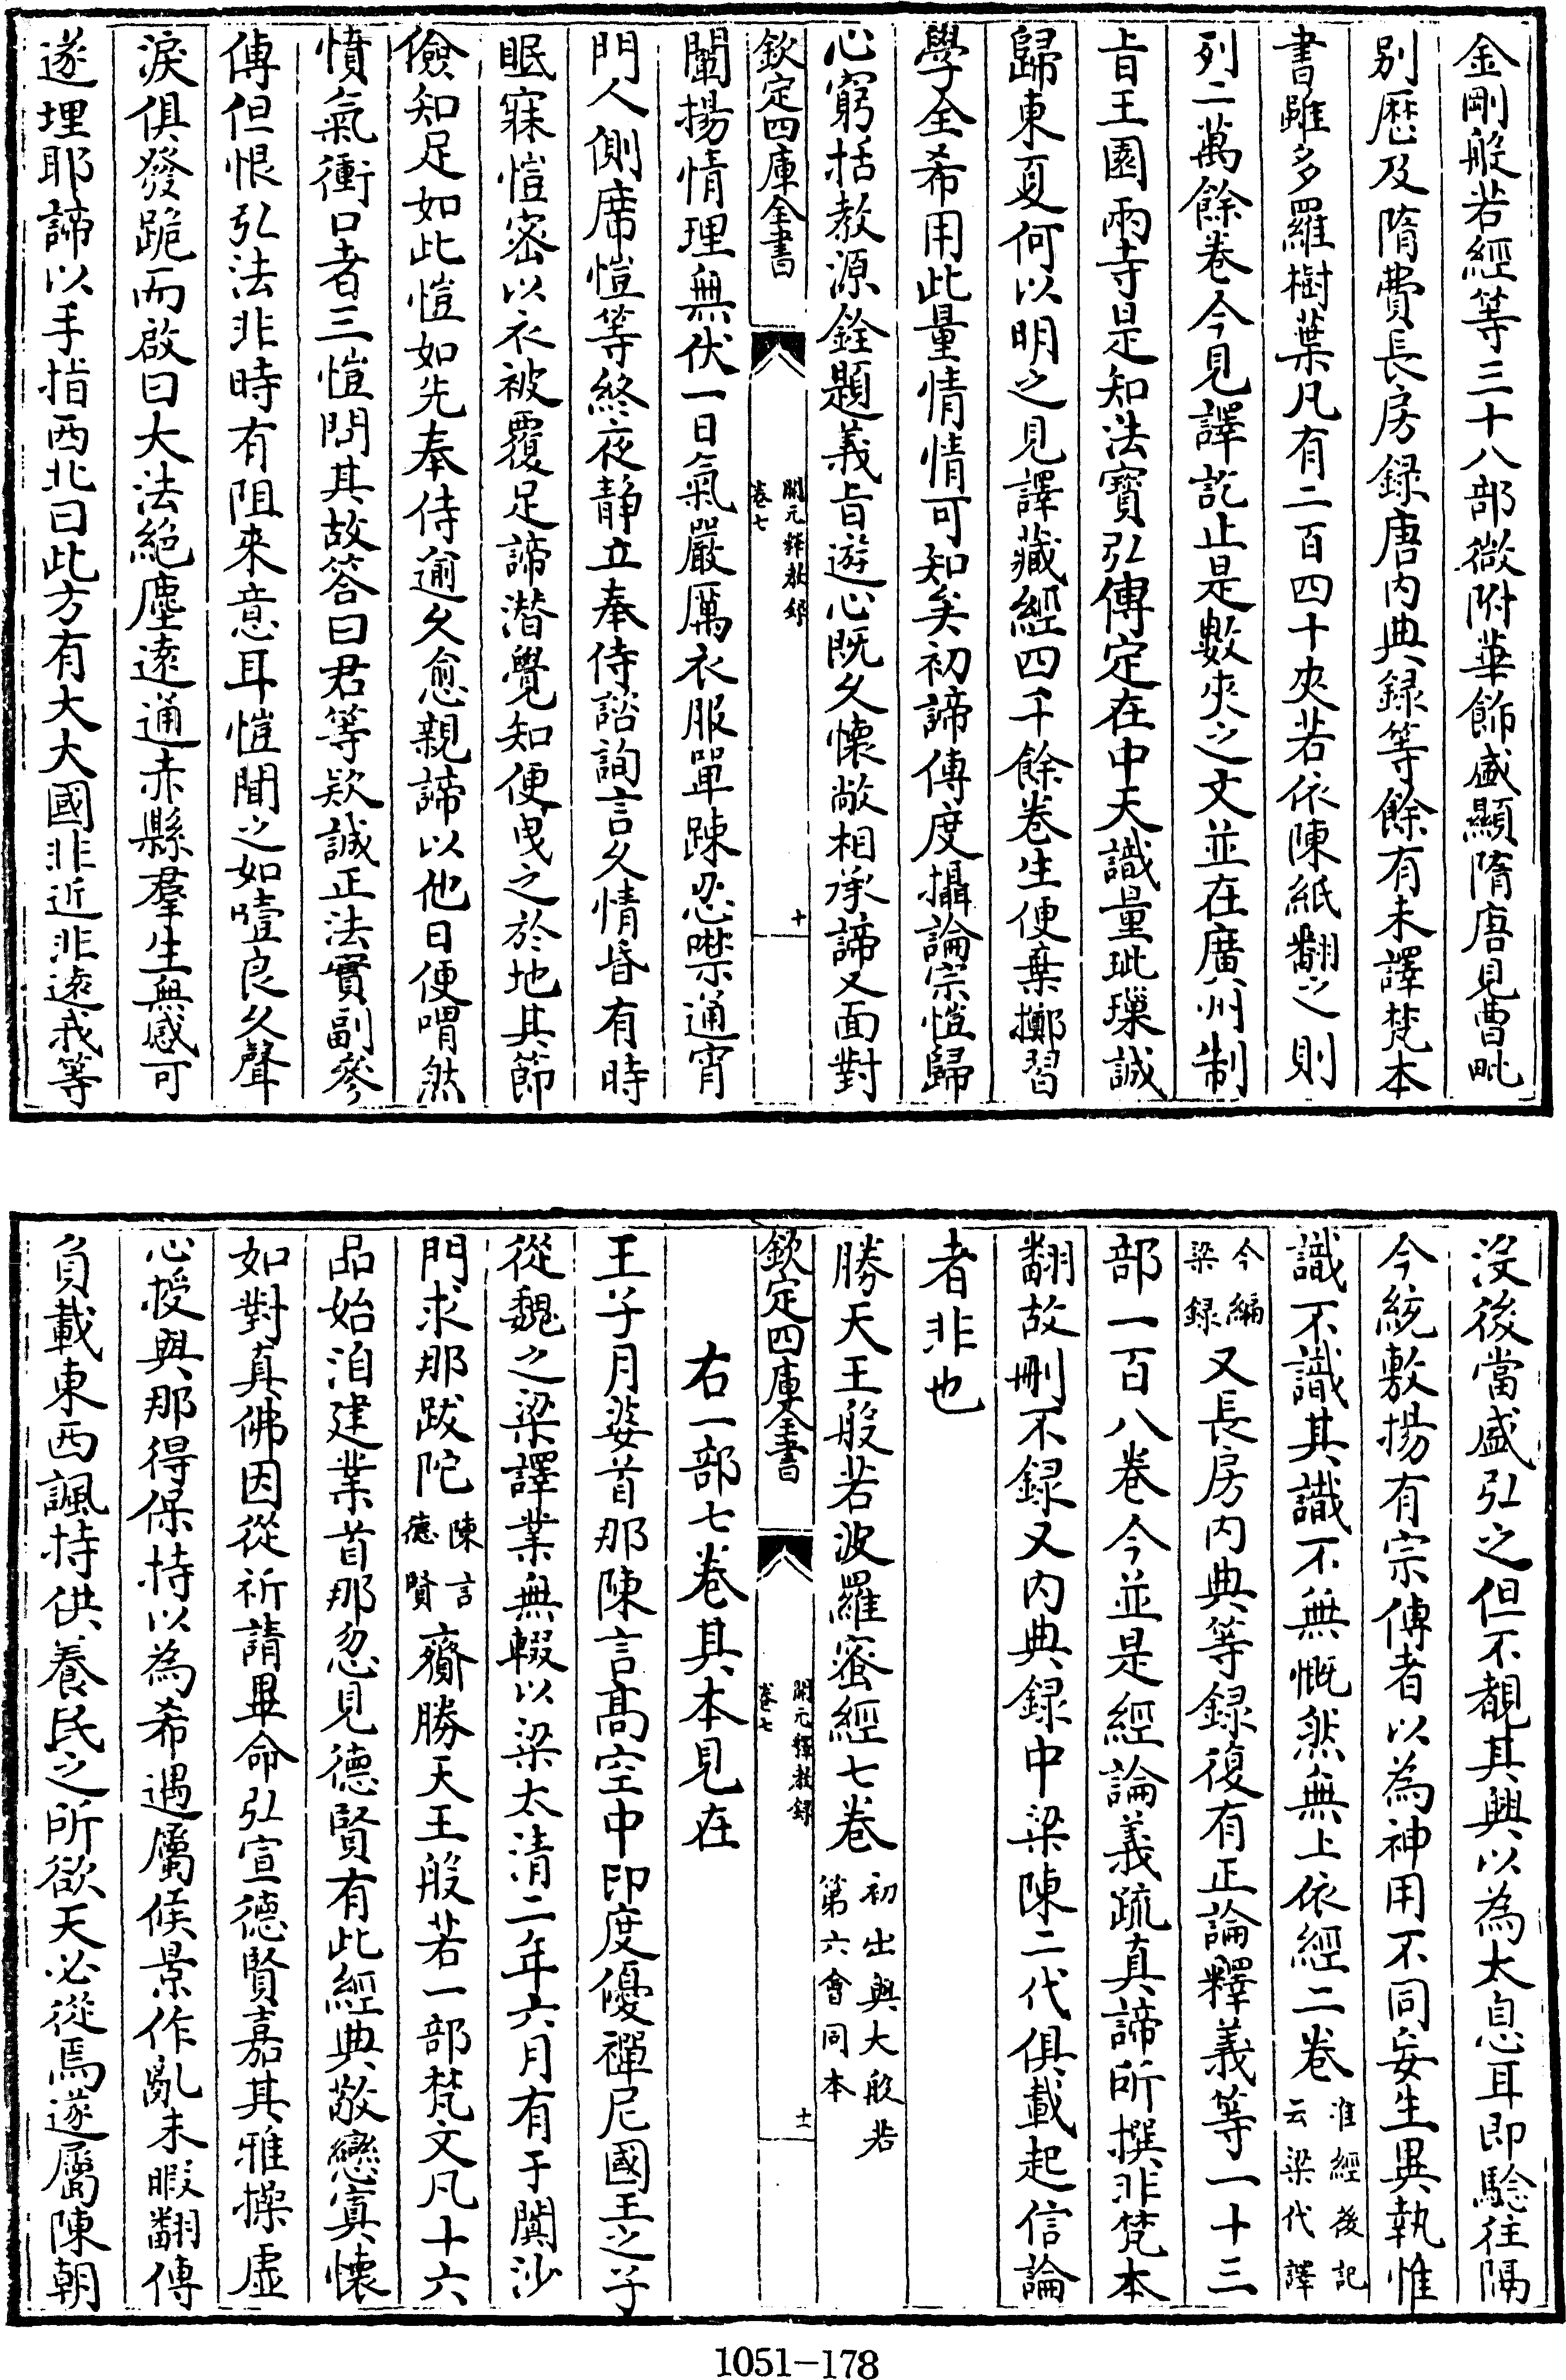 金剛般若經等三十八部微附華飾盛顯隋唐見曹毗
别歴及隋費長房録唐内典録等餘有未譯梵本
書雖多羅樹葉凡有二百四十夾若依陳紙翻之則
列二萬餘卷今見譯訖止是數夾之文並在廣州制
㫖王園兩寺是知法寳弘傳定在中天識量玼璅誠
歸東夏何以明之見譯藏經四千餘卷生便棄擲習
學全希用此量情情可知矣初諦傳度攝論宗愷歸
心窮括教源銓題義㫖遊心既久懐敞相承諦又面對
欽定四庫全書
開元釋教録
卷七
十
闡揚情理無伏一日氣嚴厲衣服單踈忍噤通宵
門人側席愷等終夜靜立奉侍諮詢言久情昏有時
眠寐愷密以衣被覆足諦潛覺知便曵之於地其節
儉知足如此愷如先奉侍逾久愈親諦以他日便喟然
憤氣衝口者三愷問其故答曰君等欵誠正法實副參
傳但恨弘法非時有阻来意耳愷聞之如噎良久聲
淚俱發跪而啟曰大法絶塵逺通赤縣羣生無感可
遂埋耶諦以手指西北曰此方有大大國非近非逺我等
没後當盛弘之但不覩其興以為太息耳即騐往隔
今統敷揚有宗傳者以為神用不同妄生異執惟
識不識其識不無慨然無上依經二卷
准經後記
云梁代譯
今編
梁録
又長房内典等録復有正論釋義等一十三
部一百八卷今並是經論義疏真諦所撰非梵本
翻故刪不録又内典録中梁陳二代俱載起信論
者非也
勝天王般若波羅蜜經七卷
初出與大般若
第六會同本
欽定四庫全書
開元釋教録
卷七
十一
右一部七卷其本見在
王子月婆首那陳言髙空中印度優禪尼國王之子
從魏之梁譯業無輟以梁太清二年六月有于闐沙
門求那跋陀
陳言
德賢
齎勝天王般若一部梵文凡十六
品始洎建業首那忽見德賢有此經典敬戀寘懐
如對真佛因從祈請畢命弘宣德賢嘉其雅操虚
心授與那得保持以為希遇屬侯景作亂未暇翻傳
負載東西諷持供養民之所欲天必從焉遂屬陳朝
1051-178